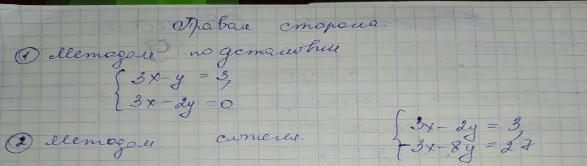 Правая сторона.
① Методом подстановки
{ 3x - y = 3,
3x - 2y = 0
② Методом сложения.
{ 3x - 2y = 3,
-3x - 8y = 27